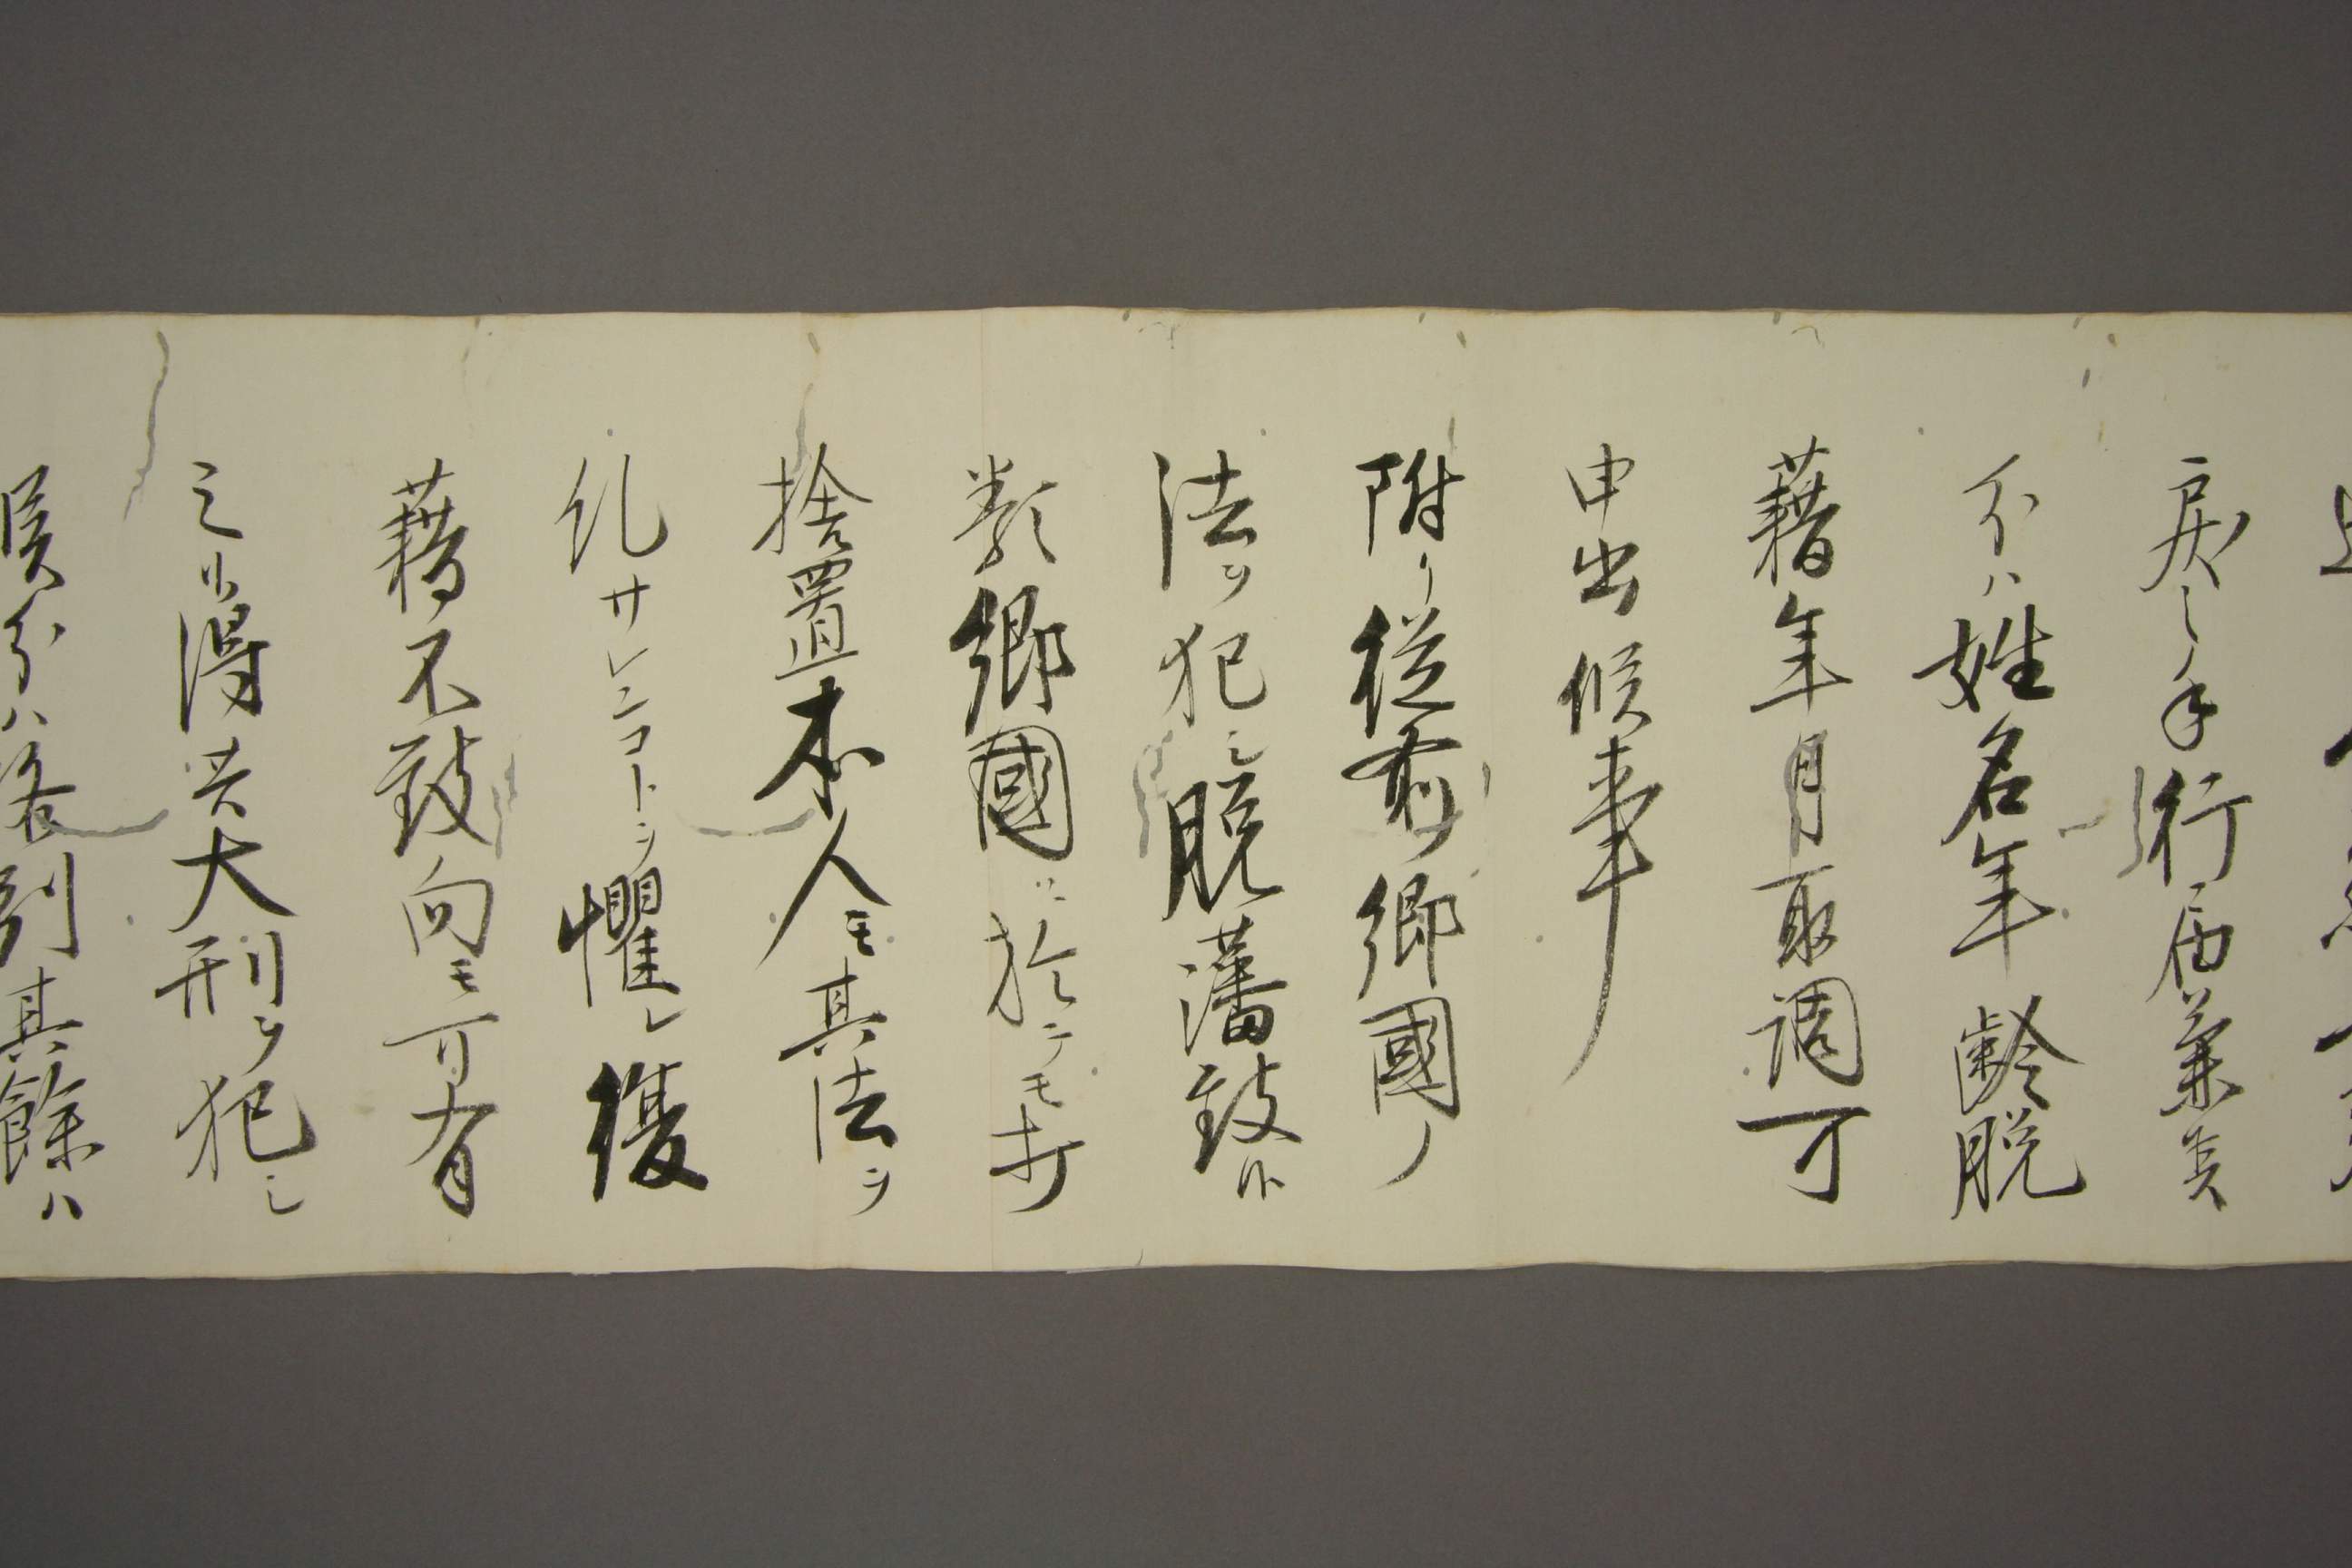 戻シ手行届兼候
分ハ姓名年齢脱
藉年月取調可
申出候事
附リ従前郷國ノ
法ヲ犯シ脱藩致候
類郷國ニ於テモ打
捨置本人モ其法ヲ
糺サレンコトヲ懼レ復
藉不致向モ可有
之候得共大刑ヲ犯シ
候分ハ格別其餘ハ